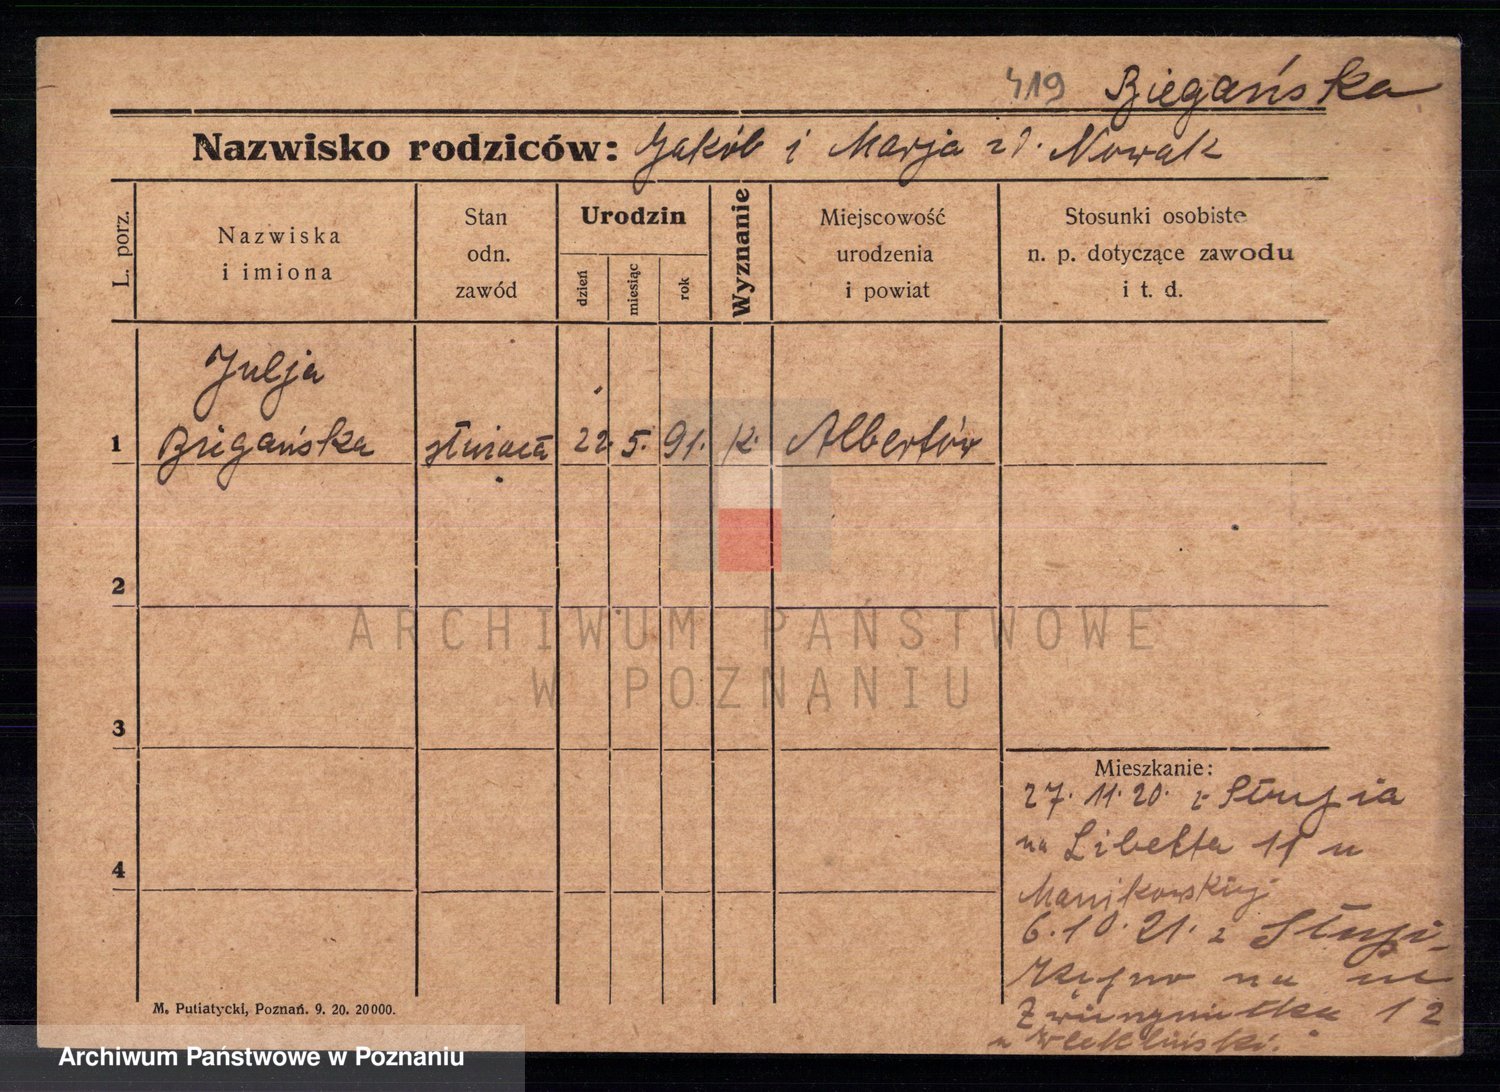 419 Biegańska
Nazwisko rodziców: Jakób i Marja zd. Nowak
L. porz.
Nazwiska
i imiona
Stan
odn.
zawód
Urodzin
dzień
miesiąc
rok
Wyznanie
Miejscowość
urodzenia
i powiat
Stosunki osobiste
n. p. dotyczące zawodu
i t. d.
Julja
1 Biegańska służąca 22. 5. 91. k. Albertów
2
3
4
Mieszkanie:
27. 11. 20. z Słupia
na Libelta 11 u
Manikowskiej
6. 10. 21. z
na
12
u
M. Putiatycki, Poznań. 9. 20. 20000.
ARCHIWUM PAŃSTWOWE
W POZNANIU
Archiwum Państwowe w Poznaniu